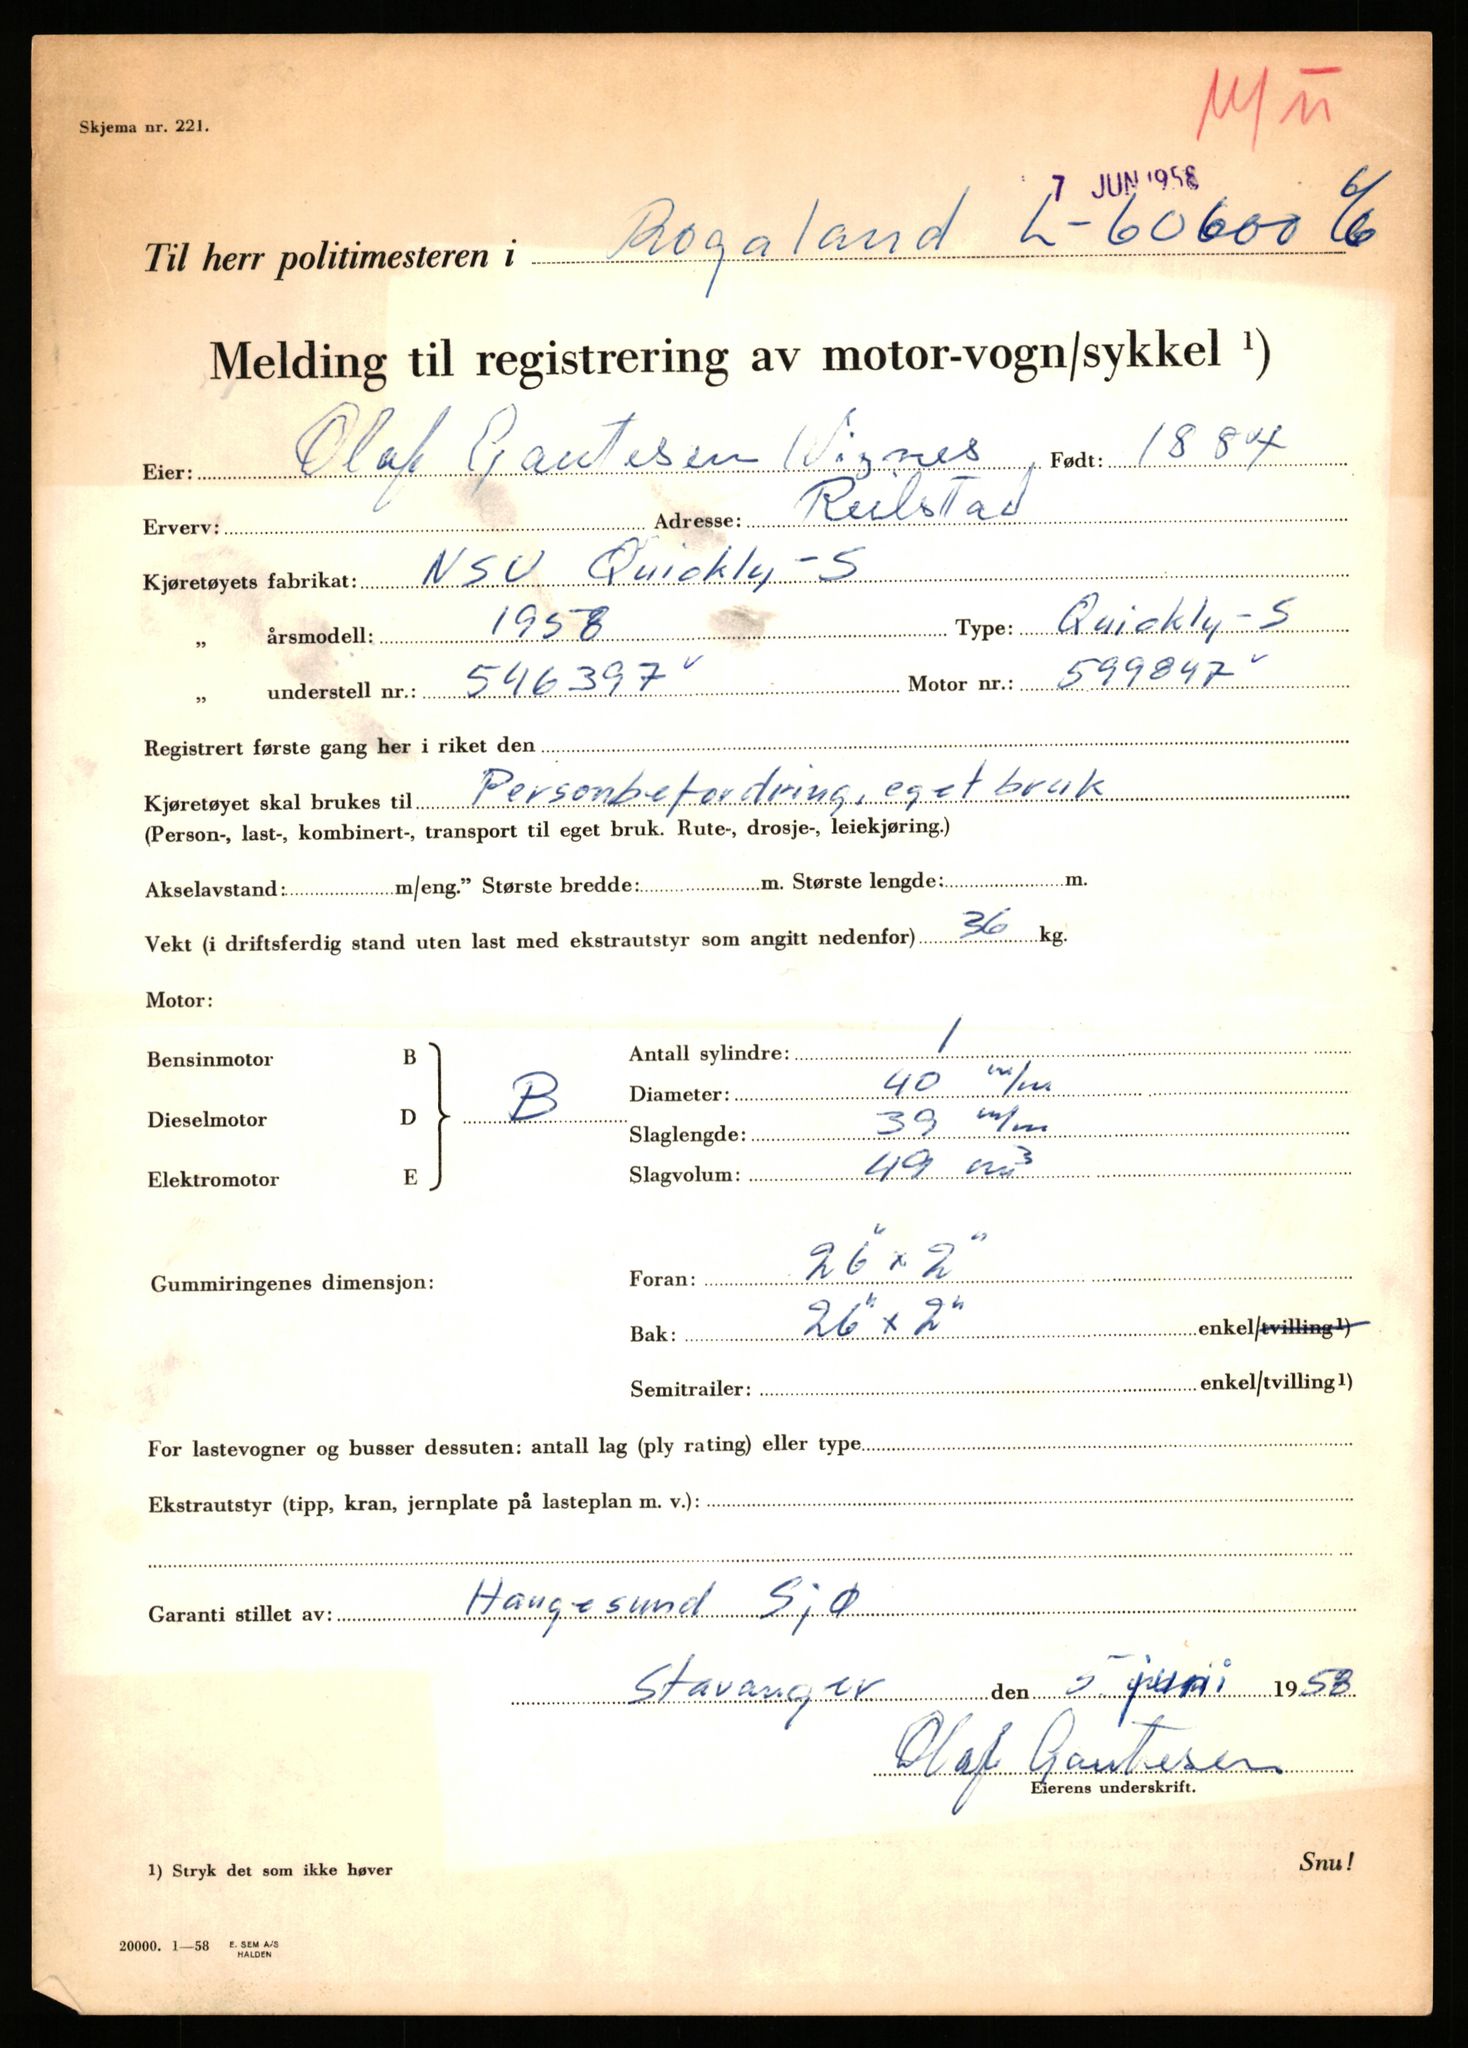 M II
Skjema nr. 221.
7 JUN 1958
6/6
Til herr politimesteren i Rogaland L-60600
Melding til registrering av motor-vogn/sykkel ¹)
Eier: Olaf Gautesen Vignes Født: 1884
Erverv: Adresse: Reilstad
Kjøretøyets fabrikat: NSU Quickly-S
„ årsmodell: 1958 Type: Quickly-S
„ understell nr.: 546397 v Motor nr.: 599847 v
Registrert første gang her i riket den
Kjøretøyet skal brukes til Personbefordring, eget bruk
(Person-, last-, kombinert-, transport til eget bruk. Rute-, drosje-, leiekjøring.)
Akselavstand: m/eng.” Største bredde: m. Største lengde: m.
Vekt (i driftsferdig stand uten last med ekstrautstyr som angitt nedenfor) 36 kg.
Motor:
Bensinmotor B Antall sylindre: 1
Diameter: 40 m/m
Dieselmotor D B Slaglengde: 39 m/m
Elektromotor E Slagvolum: 49 m³
Gummiringenes dimensjon: Foran: 26" x 2"
Bak: 26" x 2" enkel/tvilling¹)
Semitrailer: enkel/tvilling¹)
For lastevogner og busser dessuten: antall lag (ply rating) eller type
Ekstrautstyr (tipp, kran, jernplate på lasteplan m. v.):
Garanti stillet av: Haugesund Sjø
Stavanger den 5 juni 1958
Olaf Gautesen
Eierens underskrift.
1) Stryk det som ikke høver
Snu!
20000. 1—58 E. SEM A/S
HALDEN